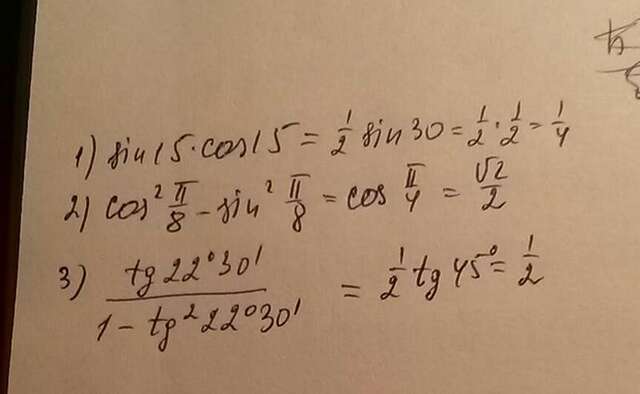 1) sin15·cos15 = 1/2 sin30 = 1/2 · 1/2 = 1/4
2) cos² π/8 - sin² π/8 = cos π/4 = √2/2
3) tg22°30' / 1 - tg²22°30' = 1/2 tg45° = 1/2